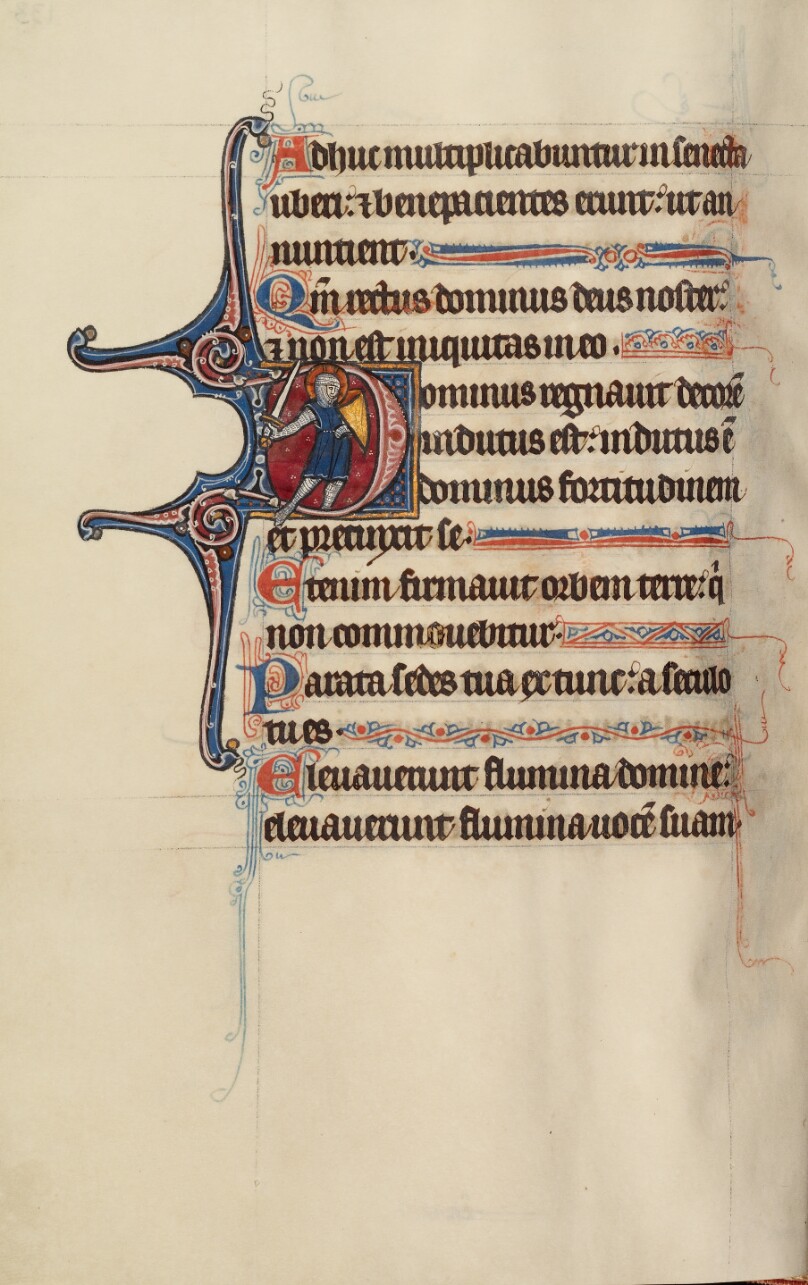 Adhuc multiplicabuntur in senecta
uberi: ⁊ bene pacientes erunt: ut an
nuntient.
Qm̄ rectus dominus deus noster:
⁊ non est iniquitas in eo.
Dominus regnauit decorē
indutus est: indutus ē
dominus fortitudinem
et precinxit se.
Etenim firmauit orbem terre: q̇
non commouebitur.
Parata sedes tua ex tunc: a seculo
tu es.
Eleuauerunt flumina domine:
eleuauerunt flumina uocē suam